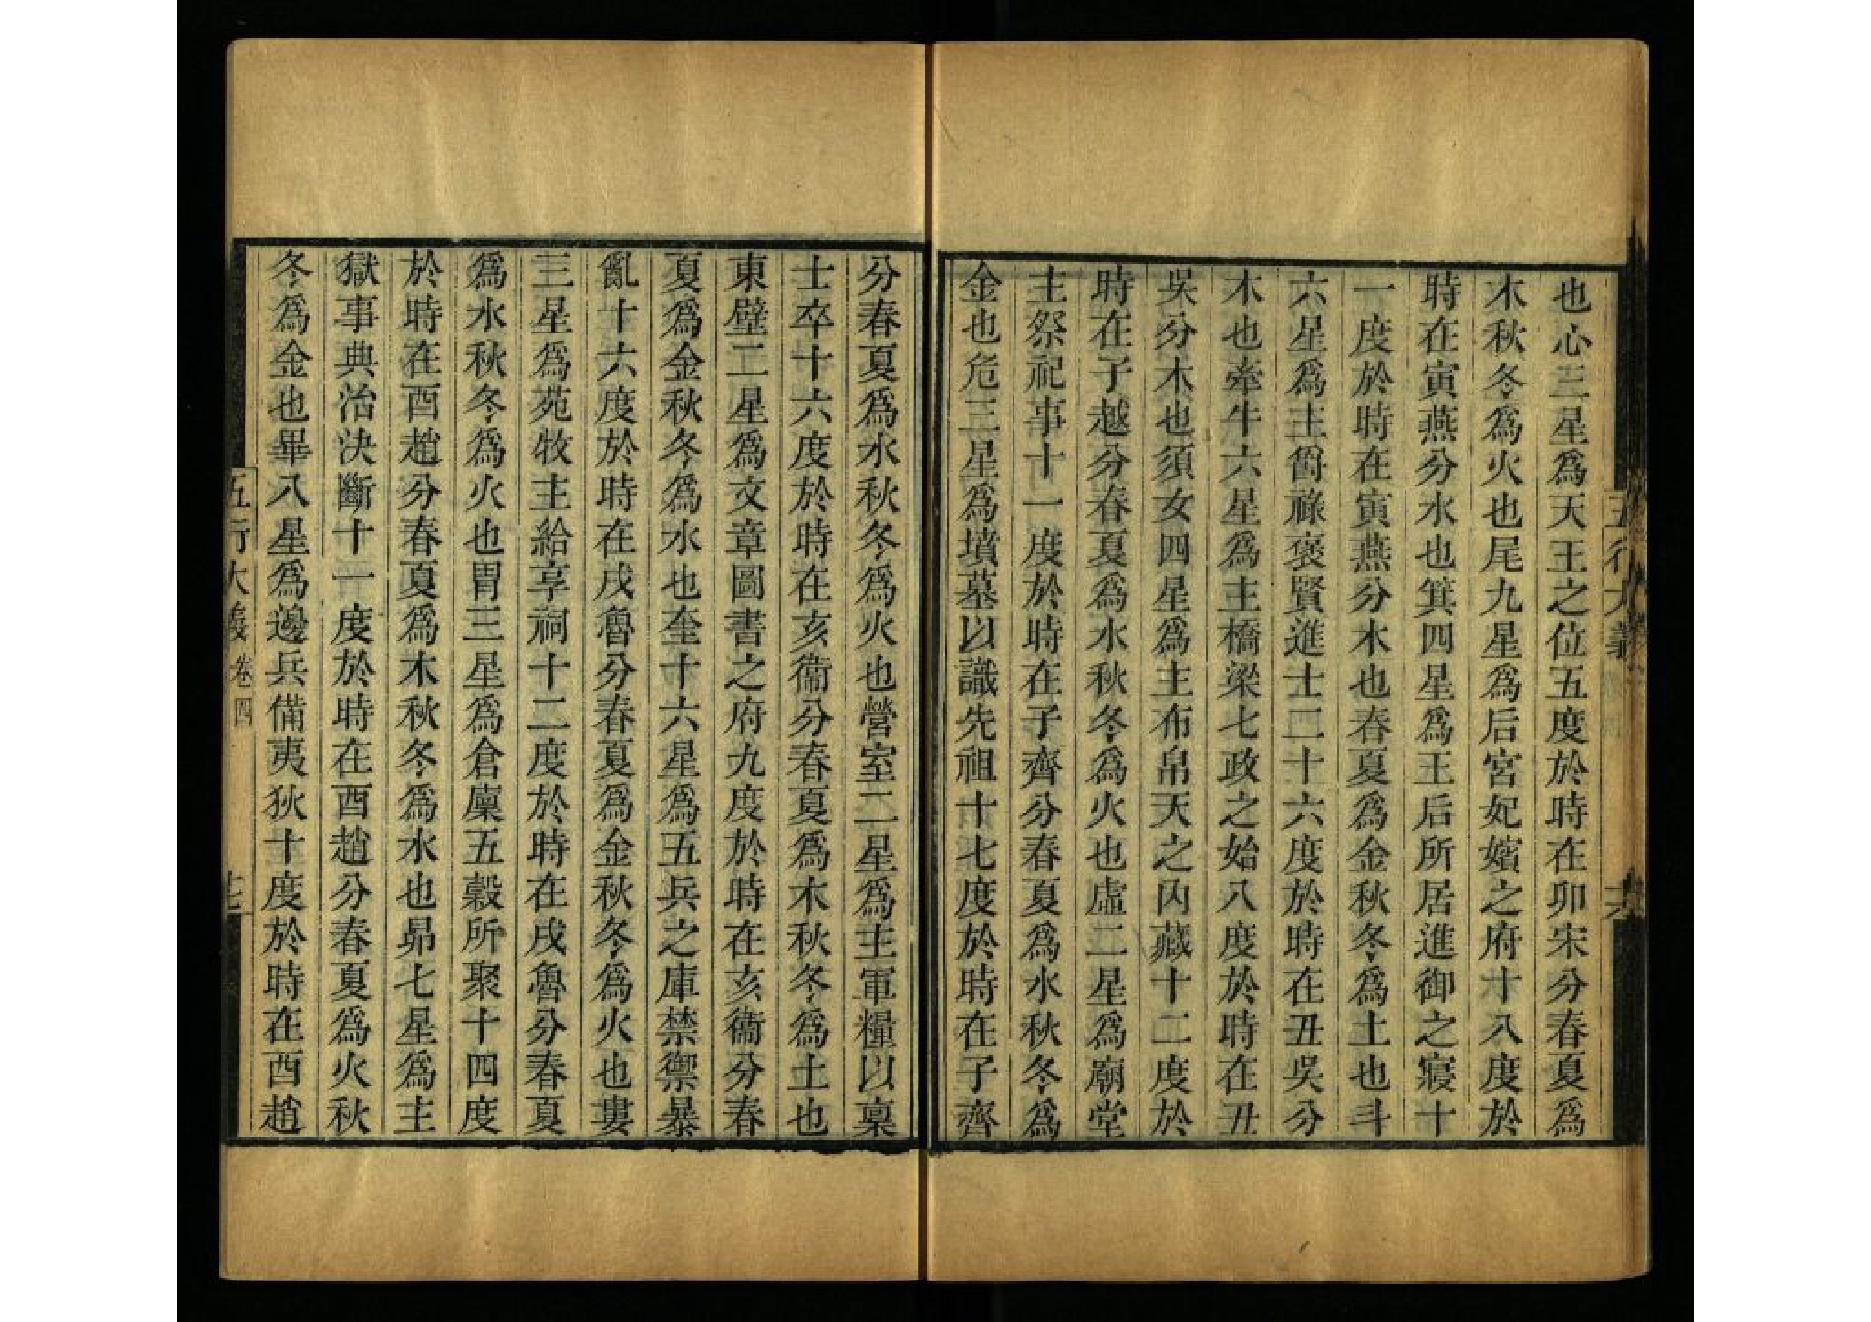 五行大義
六
也心三星爲天王之位五度於時在卯宋分春夏爲
木秋冬爲火也尾九星爲后宮妃嬪之府十八度於
時在寅燕分水也箕四星爲王后所居進御之寢十
一度於時在寅燕分木也春夏爲金秋冬爲土也斗
六星爲主爵祿褒賢進士二十六度於時在丑吳分
木也牽牛六星爲主橋梁七政之始八度於時在丑
吳分木也須女四星爲主布帛天之內藏十二度於
時在子越分春夏爲水秋冬爲火也虛二星爲廟堂
主祭祀事十一度於時在子齊分春夏爲水秋冬爲
金也危三星爲墳墓以識先祖十七度於時在子齊
分春夏爲水秋冬爲火也營室二星爲主軍糧以稟
士卒十六度於時在亥衞分春夏爲木秋冬爲土也
東壁二星爲文章圖書之府九度於時在亥衞分春
夏爲金秋冬爲水也奎十六星爲五兵之庫禁禦暴
亂十六度於時在戌魯分春夏爲金秋冬爲火也婁
三星爲苑牧主給享祠十二度於時在戌魯分春夏
爲水秋冬爲火也胃三星爲倉廩五穀所聚十四度
於時在酉趙分春夏爲木秋冬爲水也昴七星爲主
獄事典治決斷十一度於時在酉趙分春夏爲火秋
冬爲金也畢八星爲邊兵備夷狄十度於時在酉趙
五行大義 卷四